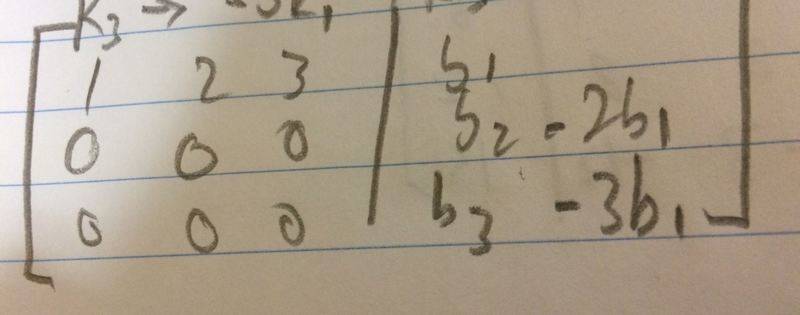 1 2 3 | b₁
0 0 0 | b₂ - 2b₁
0 0 0 | b₃ - 3b₁